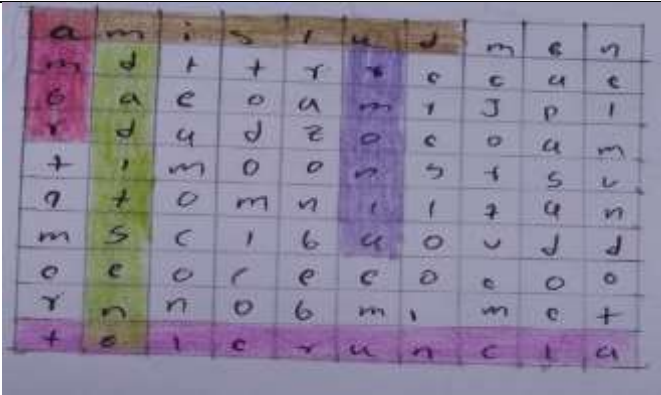 a m i s t a d m e n
m d t t r r e c u e
o a e o a m r J p l
r d u d z o e o a m
t i m o o n s t s v
n t o m n i l z a n
m s c i b a o v d d
o e o r e e o e o o
r n n o b m i m e t
t o l e r a n c i a